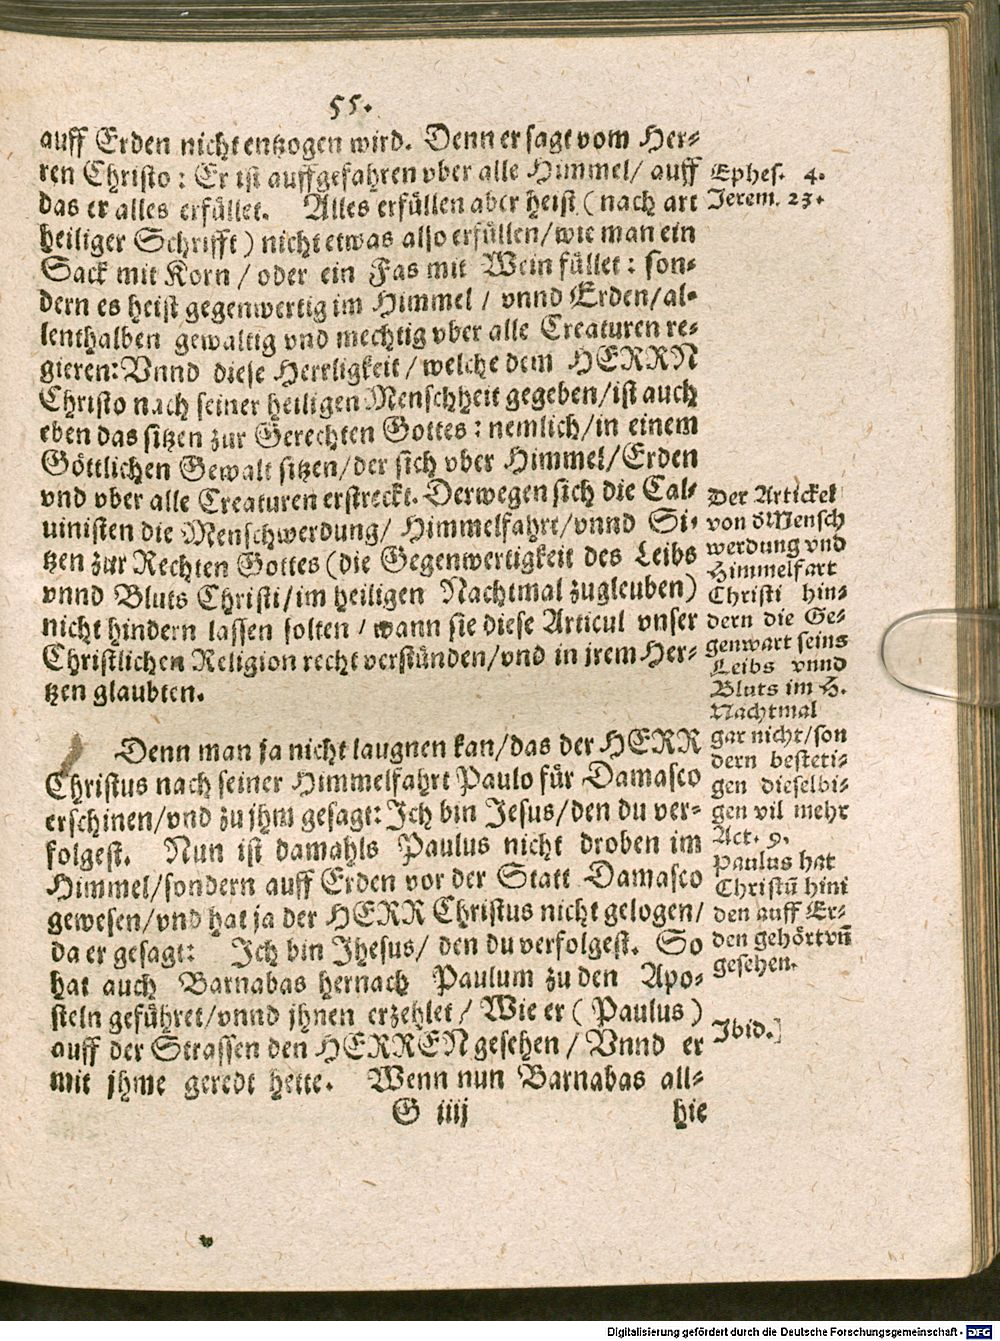 55.
auff Erden nicht entzogen wird. Denn er sagt vom Her-
ren Christo: Er ist auffgefahren vber alle Himmel/ auff
das er alles erfüllet. Alles erfüllen aber heist (nach art
heiliger Schrifft) nicht etwas also erfüllen/wie man ein
Sack mit Korn / oder ein Fas mit Wein füllet: son-
dern es heist gegenwertig im Himmel / vnnd Erden/al-
lenthalben gewaltig vnd mechtig vber alle Creaturen re-
gieren: Vnnd diese Herrligkeit / welche dem HERRN
Christo nach seiner heiligen Menschheit gegeben/ist auch
eben das sitzen zur Gerechten Gottes: nemlich/in einem
Göttlichen Gewalt sitzen/der sich vber Himmel/Erden
vnd vber alle Creaturen erstreckt. Derwegen sich die Cal-
uinisten die Menschwerdung/ Himmelfahrt/vnnd Si-
tzen zur Rechten Gottes (die Gegenwertigkeit des Leibs
vnnd Bluts Christi/im heiligen Nachtmal zugleuben)
nicht hindern lassen solten / wann sie diese Articul vnser
Christlichen Religion recht verstünden/vnd in jrem Her-
tzen glaubten.
Denn man ja nicht laugnen kan/das der HERR
Christus nach seiner Himmelfahrt Paulo für Damasco
erschinen/vnd zu jhm gesagt: Ich bin Jesus/den du ver-
folgest. Nun ist damahls Paulus nicht droben im
Himmel/sondern auff Erden vor der Statt Damasco
gewesen/vnd hat ja der HERR Christus nicht gelogen/
da er gesagt: Ich bin Jhesus/ den du verfolgest. So
hat auch Barnabas hernach Paulum zu den Apo-
steln geführet/vnnd jhnen erzehlet / Wie er ( Paulus )
auff der Strassen den HERREN gesehen / Vnnd er
mit jhme geredt hette. Wenn nun Barnabas all-
G iiij hie
Ephes. 4.
Jerem. 23.
Der Artickel
von d Mensch
werdung vnd
Himmelfart
Christi hin-
dern die Ge-
genwart seins
Leibs vnnd
Bluts im H.
Nachtmal
gar nicht/son
dern besteti-
gen dieselbi-
gen vil mehr
Act. 9.
Paulus hat
Christū hini
den auff Er-
den gehört vñ
gesehen.
Ibid.]
Digitalisierung gefördert durch die Deutsche Forschungsgemeinschaft - DFG